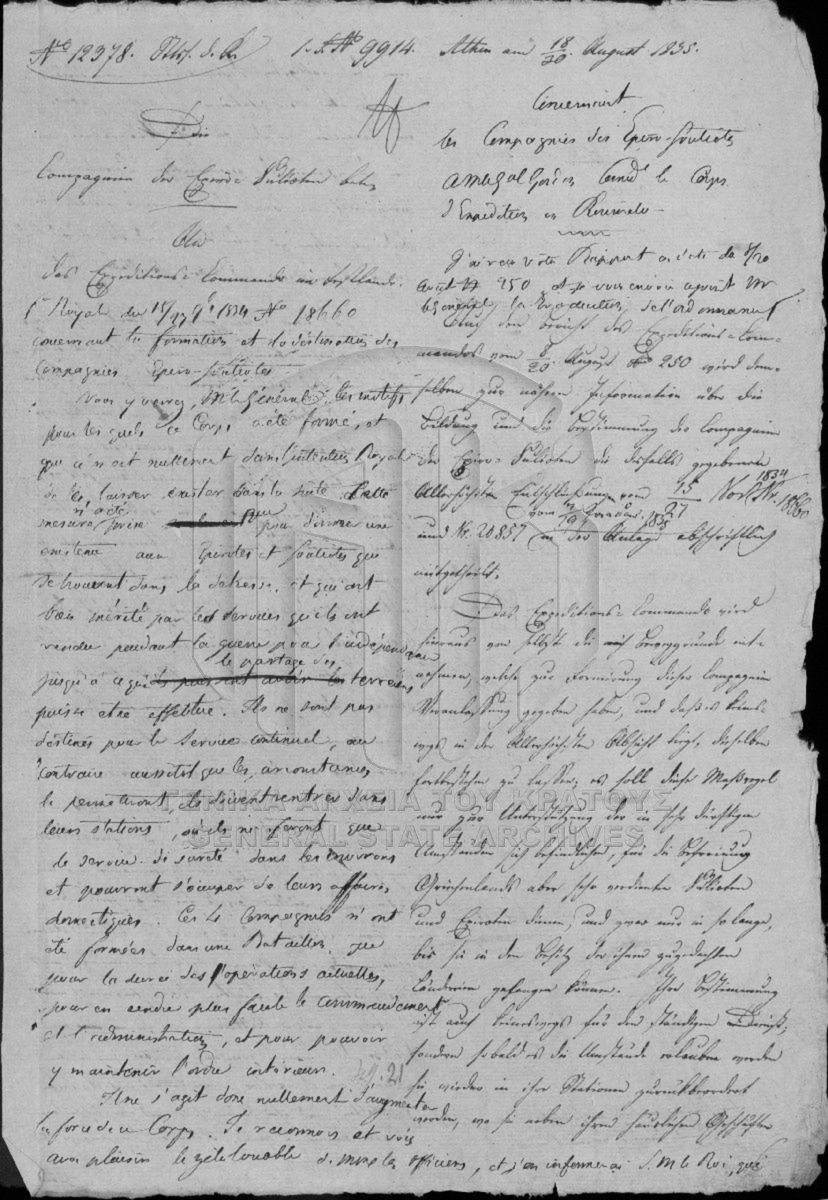 No 12378. 1. S. No 9914. Athen am 18/30. August 1835.
Die
Compagnien der Epiro-Sullioten betr.
An
das Expeditions-Commando im Festlande.
Concernant
les Compagnies des Epiro-Souliotes
à Mr le Général Gordon Comdt le Corps
d'Expedition en Roumelie
J'ai reçu votre Rapport en date du 8/20
août No 250 et je vous envoie
la traduction de l'ordonnance
Royale du 15/27 9b 1834 No 18660
concernant la formation et la destination des
Compagnies Epiro-Souliotes
Vous y verrez, Mr le Général, les motifs
pour lesquels ce Corps a été formé, et
que ce n'est nullement dans l'intention Royale
de les laisser exister dans la suite. Cette
mesure n'a été prise que pour donner une
existence aux Epirotes et Souliotes qui
se trouvent dans la detresse, et qui ont
bien mérité par les services qu'ils ont
rendu pendant la guerre pour l'indépendance
jusqu'à ce que le partage des terreins
puisse etre effectué. Ils ne sont pas
destinés pour le service continuel, au
contraire aussitot que les circonstances
le permettront, ils doivent rentrer dans
leurs stations, où ils ne feront que
le service de sureté dans les environs
et pourront s'occuper de leurs affaires
domestiques. Ces 4 Compagnies n'ont
été formées dans une Bataillon que
pour la durée des opérations actuelles,
pour en rendre plus facile le commandement
et l'administration, et pour pouvoir
y maintenir l'ordre intérieur.
Il ne s'agit donc nullement d'augmenter
la force de ce Corps. Je reconnois et vois
avec plaisir le zèle louable de Mrs les officiers, et j'en informerai S. M. le Roi, que
Auf den Bericht des Expeditions-Com-
mandos vom 8/20. August No 250 wird dem-
selben zur nähern Information über die
Bildung und die Bestimmung der Compagnien
der Epiro-Sullioten die desfalls gegebene
Allerhöchsten Entschließungen vom 15/27 Nov. 1834 Nr. 18660
vom Januar 1835
und Nr. 20857 in der Anlage abschriftlich
mitgetheilt.
Das Expeditions-Commando wird
hieraus von selbst die Beweggründe ent-
nehmen, welche zur Formirung dieser Compagnien
Veranlassung gegeben haben, und daß es keines-
wegs in der Allerhöchsten Absicht liegt, dieselben
fortbestehen zu lassen; es soll diese Maßregel
nur zur Unterstützung der in sehr dürftigen
Umständen sich befindlichen, für die Befreiung
Griechenlands aber sehr verdienten Sullioten
und Epiroten dienen, und zwar nur in so lange,
bis sie in den Besitz der ihnen zugedachten
Ländereien gelangen können. Ihre Bestimmung
ist auch keineswegs für den ständigen Dienst,
sondern sobald es die Umstände erlauben werden
sie wieder in ihre Stationen zurückbeordert
werden, wo sie neben ihren häuslichen Geschäften
ΓΕΝΙΚΑ ΑΡΧΕΙΑ ΤΟΥ ΚΡΑΤΟΥΣ
GENERAL STATE ARCHIVES